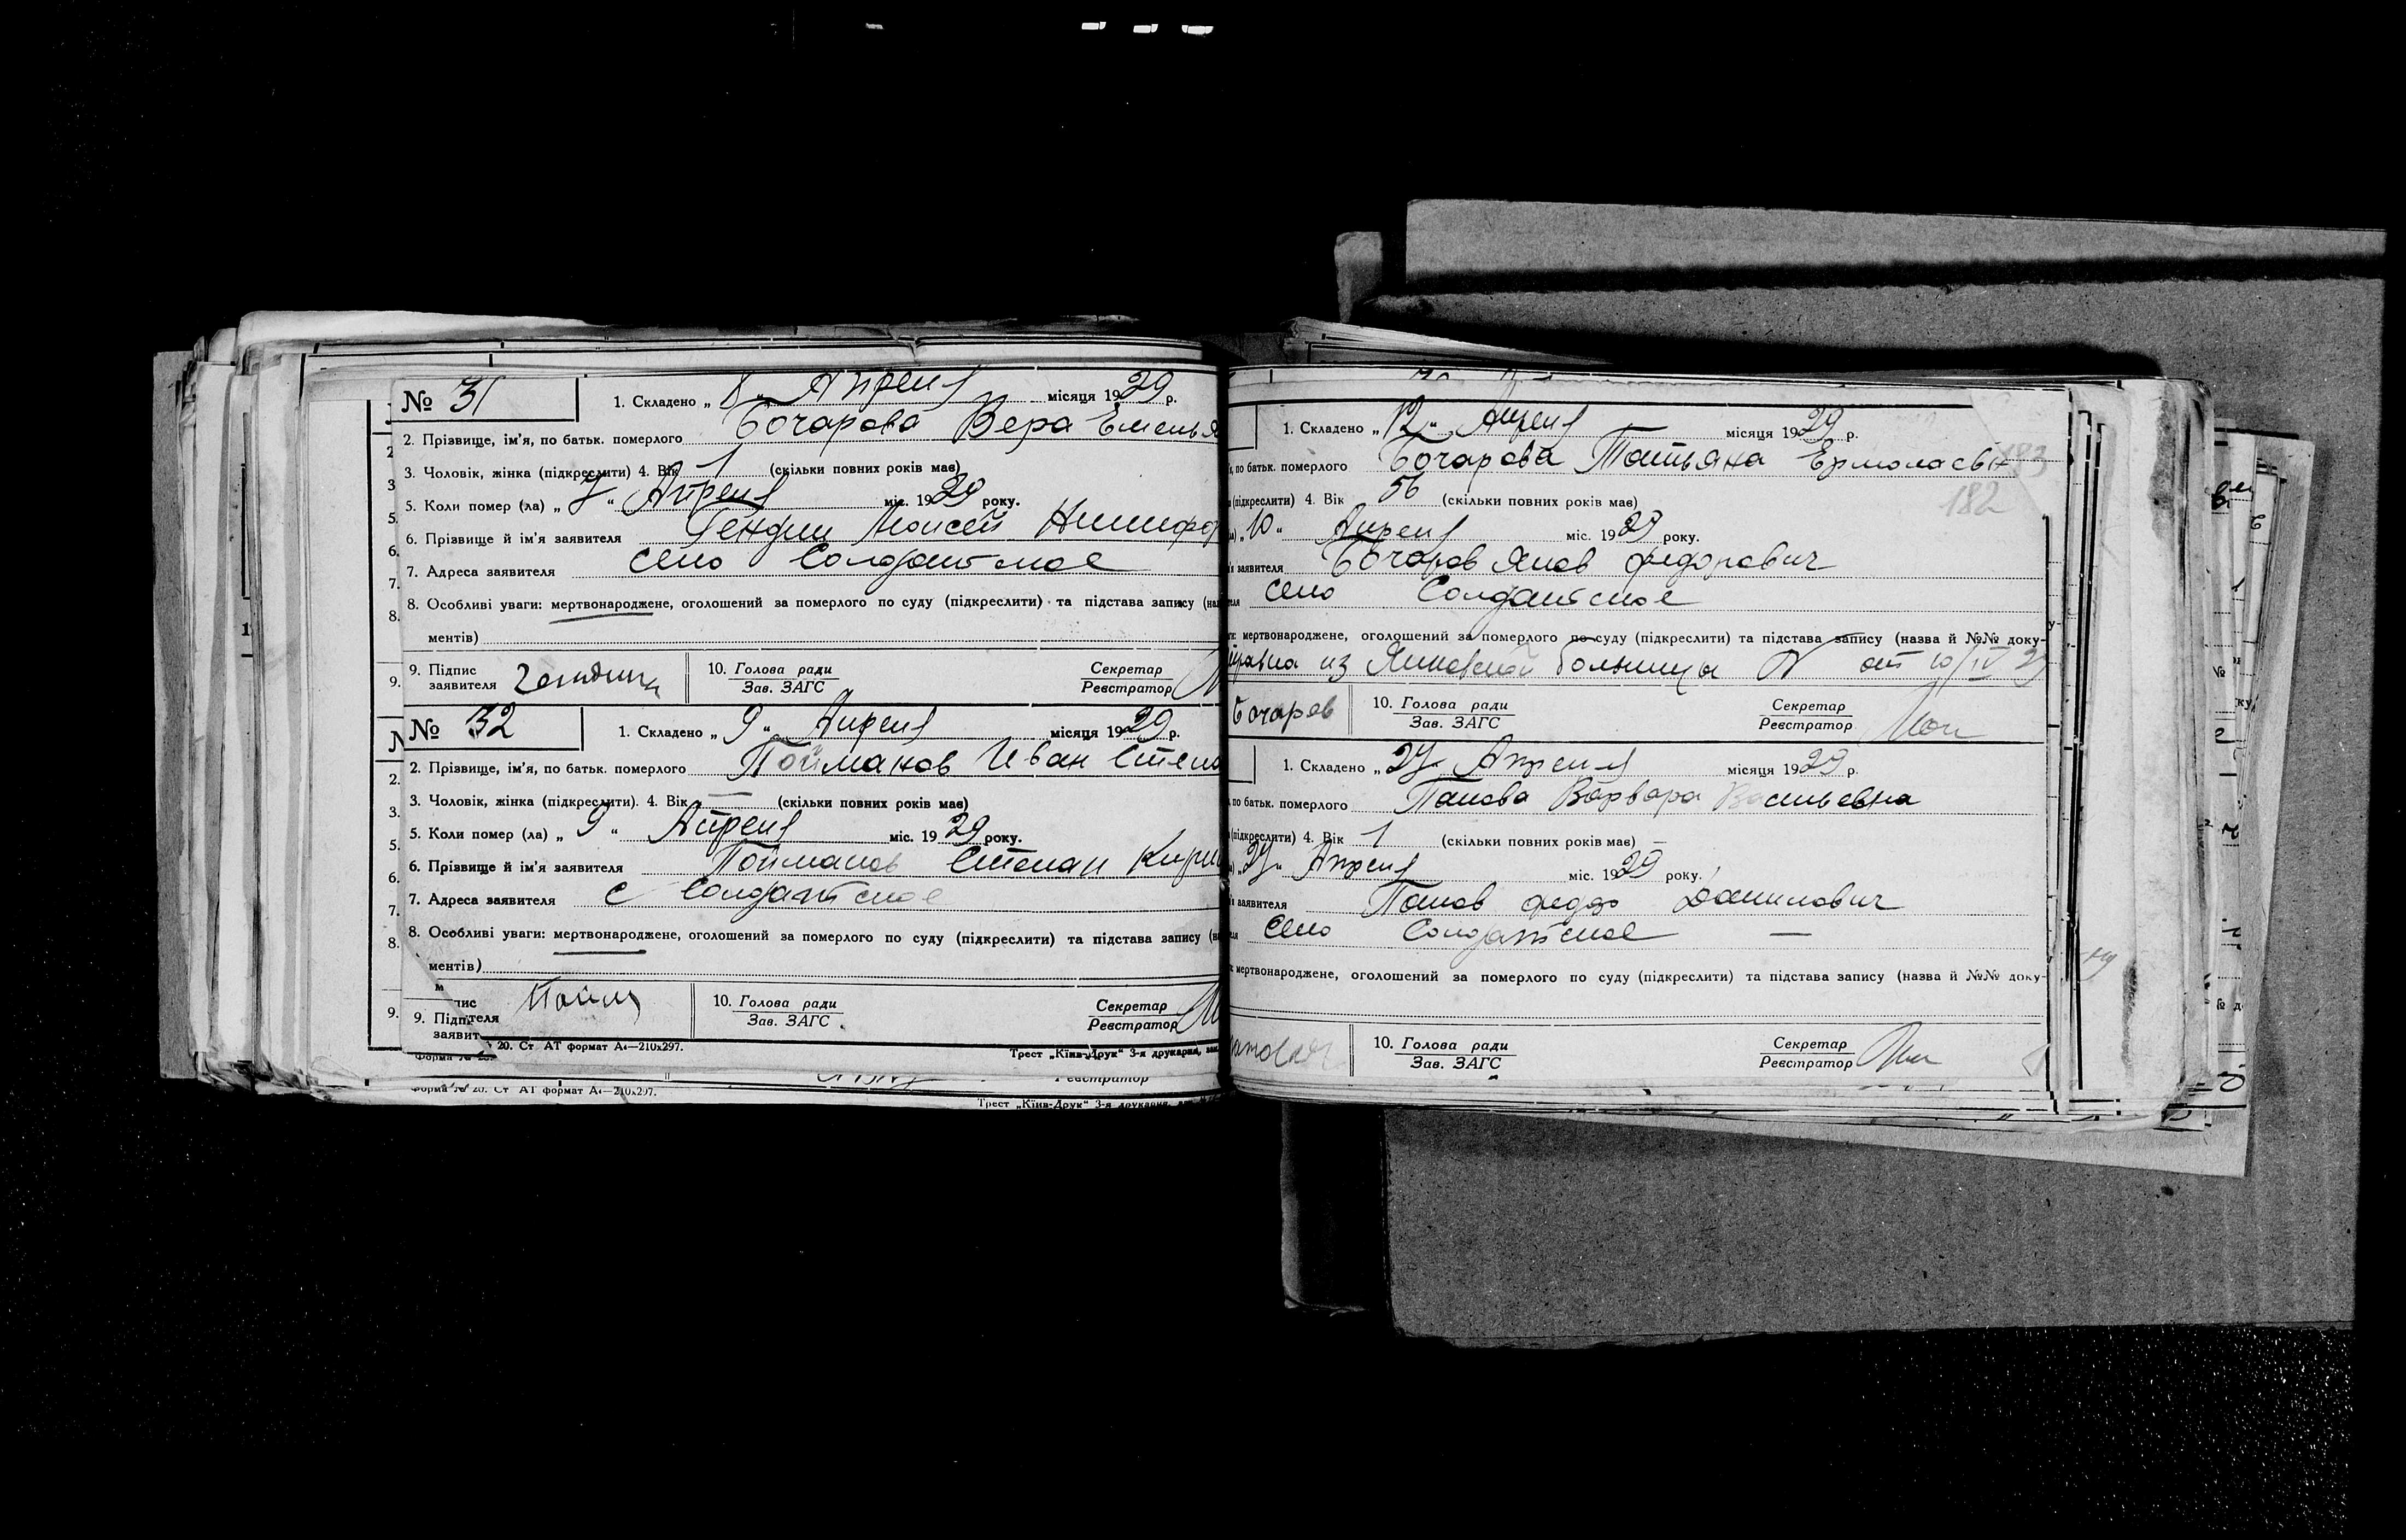 № 31
1. Складено „ 8 “ Апреля місяця 1929 р.
2. Прізвище, ім'я, по батьк. померлого Бочарова Вера Емелья
3. Чоловік, жінка (підкреслити) 4. Вік 1 (скільки повних років має)
5. Коли помер (ла) „ 7 “ Апреля міс. 1929 року.
6. Прізвище й ім'я заявителя Гендин Моисей Никифор
7. Адреса заявителя село Солдатское
8. Особливі уваги: мертвонароджене, оголошений за померлого по суду (підкреслити) та підстава запису (на
ментів)
9. Підпис заявителя
10. Голова ради
Зав. ЗАГС
Секретар
Реєстратор
№ 32
1. Складено „ 9 “ Апреля місяця 1929 р.
2. Прізвище, ім'я, по батьк. померлого Пойманов Иван Степа
3. Чоловік, жінка (підкреслити). 4. Вік — (скільки повних років має)
5. Коли помер (ла) „ 9 “ Апреля міс. 1929 року.
6. Прізвище й ім'я заявителя Пойманов Степан Кири
7. Адреса заявителя с Солдатское
8. Особливі уваги: мертвонароджене, оголошений за померлого по суду (підкреслити) та підстава запису (на
ментів)
9. Підпис заявителя Пойм
10. Голова ради
Зав. ЗАГС
Секретар
Реєстратор
20. Ст АТ формат А4—210х297.
Трест „Київ-Друк“ 3-я друкарня, зак.
Форма № 20. Ст АТ формат А4—210х297.
Реєстратор
Трест „Київ-Друк“ 3-я друкарня,
1. Складено „ 12 “ Апреля місяця 1929 р.
по батьк. померлого Бочарова Татьяна Ермолаевн
182
(підкреслити) 4. Вік 56 (скільки повних років має)
„ 10 “ Апреля міс. 1929 року.
заявителя Бочаров Яков Федорович
село Солдатское
мертвонароджене, оголошений за померлого по суду (підкреслити) та підстава запису (назва й №№ доку-
правка из Яковской больницы № от 10/IV 29
Бочаров
10. Голова ради
Зав. ЗАГС
Секретар
Реєстратор
1. Складено „ 27 “ Апреля місяця 1929 р.
по батьк. померлого Панова Варвара Васильевна
(підкреслити) 4. Вік 1 (скільки повних років має)
„ 27 “ Апреля міс. 1929 року.
заявителя Панов Федор Данилович
село Солдатское —
мертвонароджене, оголошений за померлого по суду (підкреслити) та підстава запису (назва й №№ доку-
10. Голова ради
Зав. ЗАГС
Секретар
Реєстратор